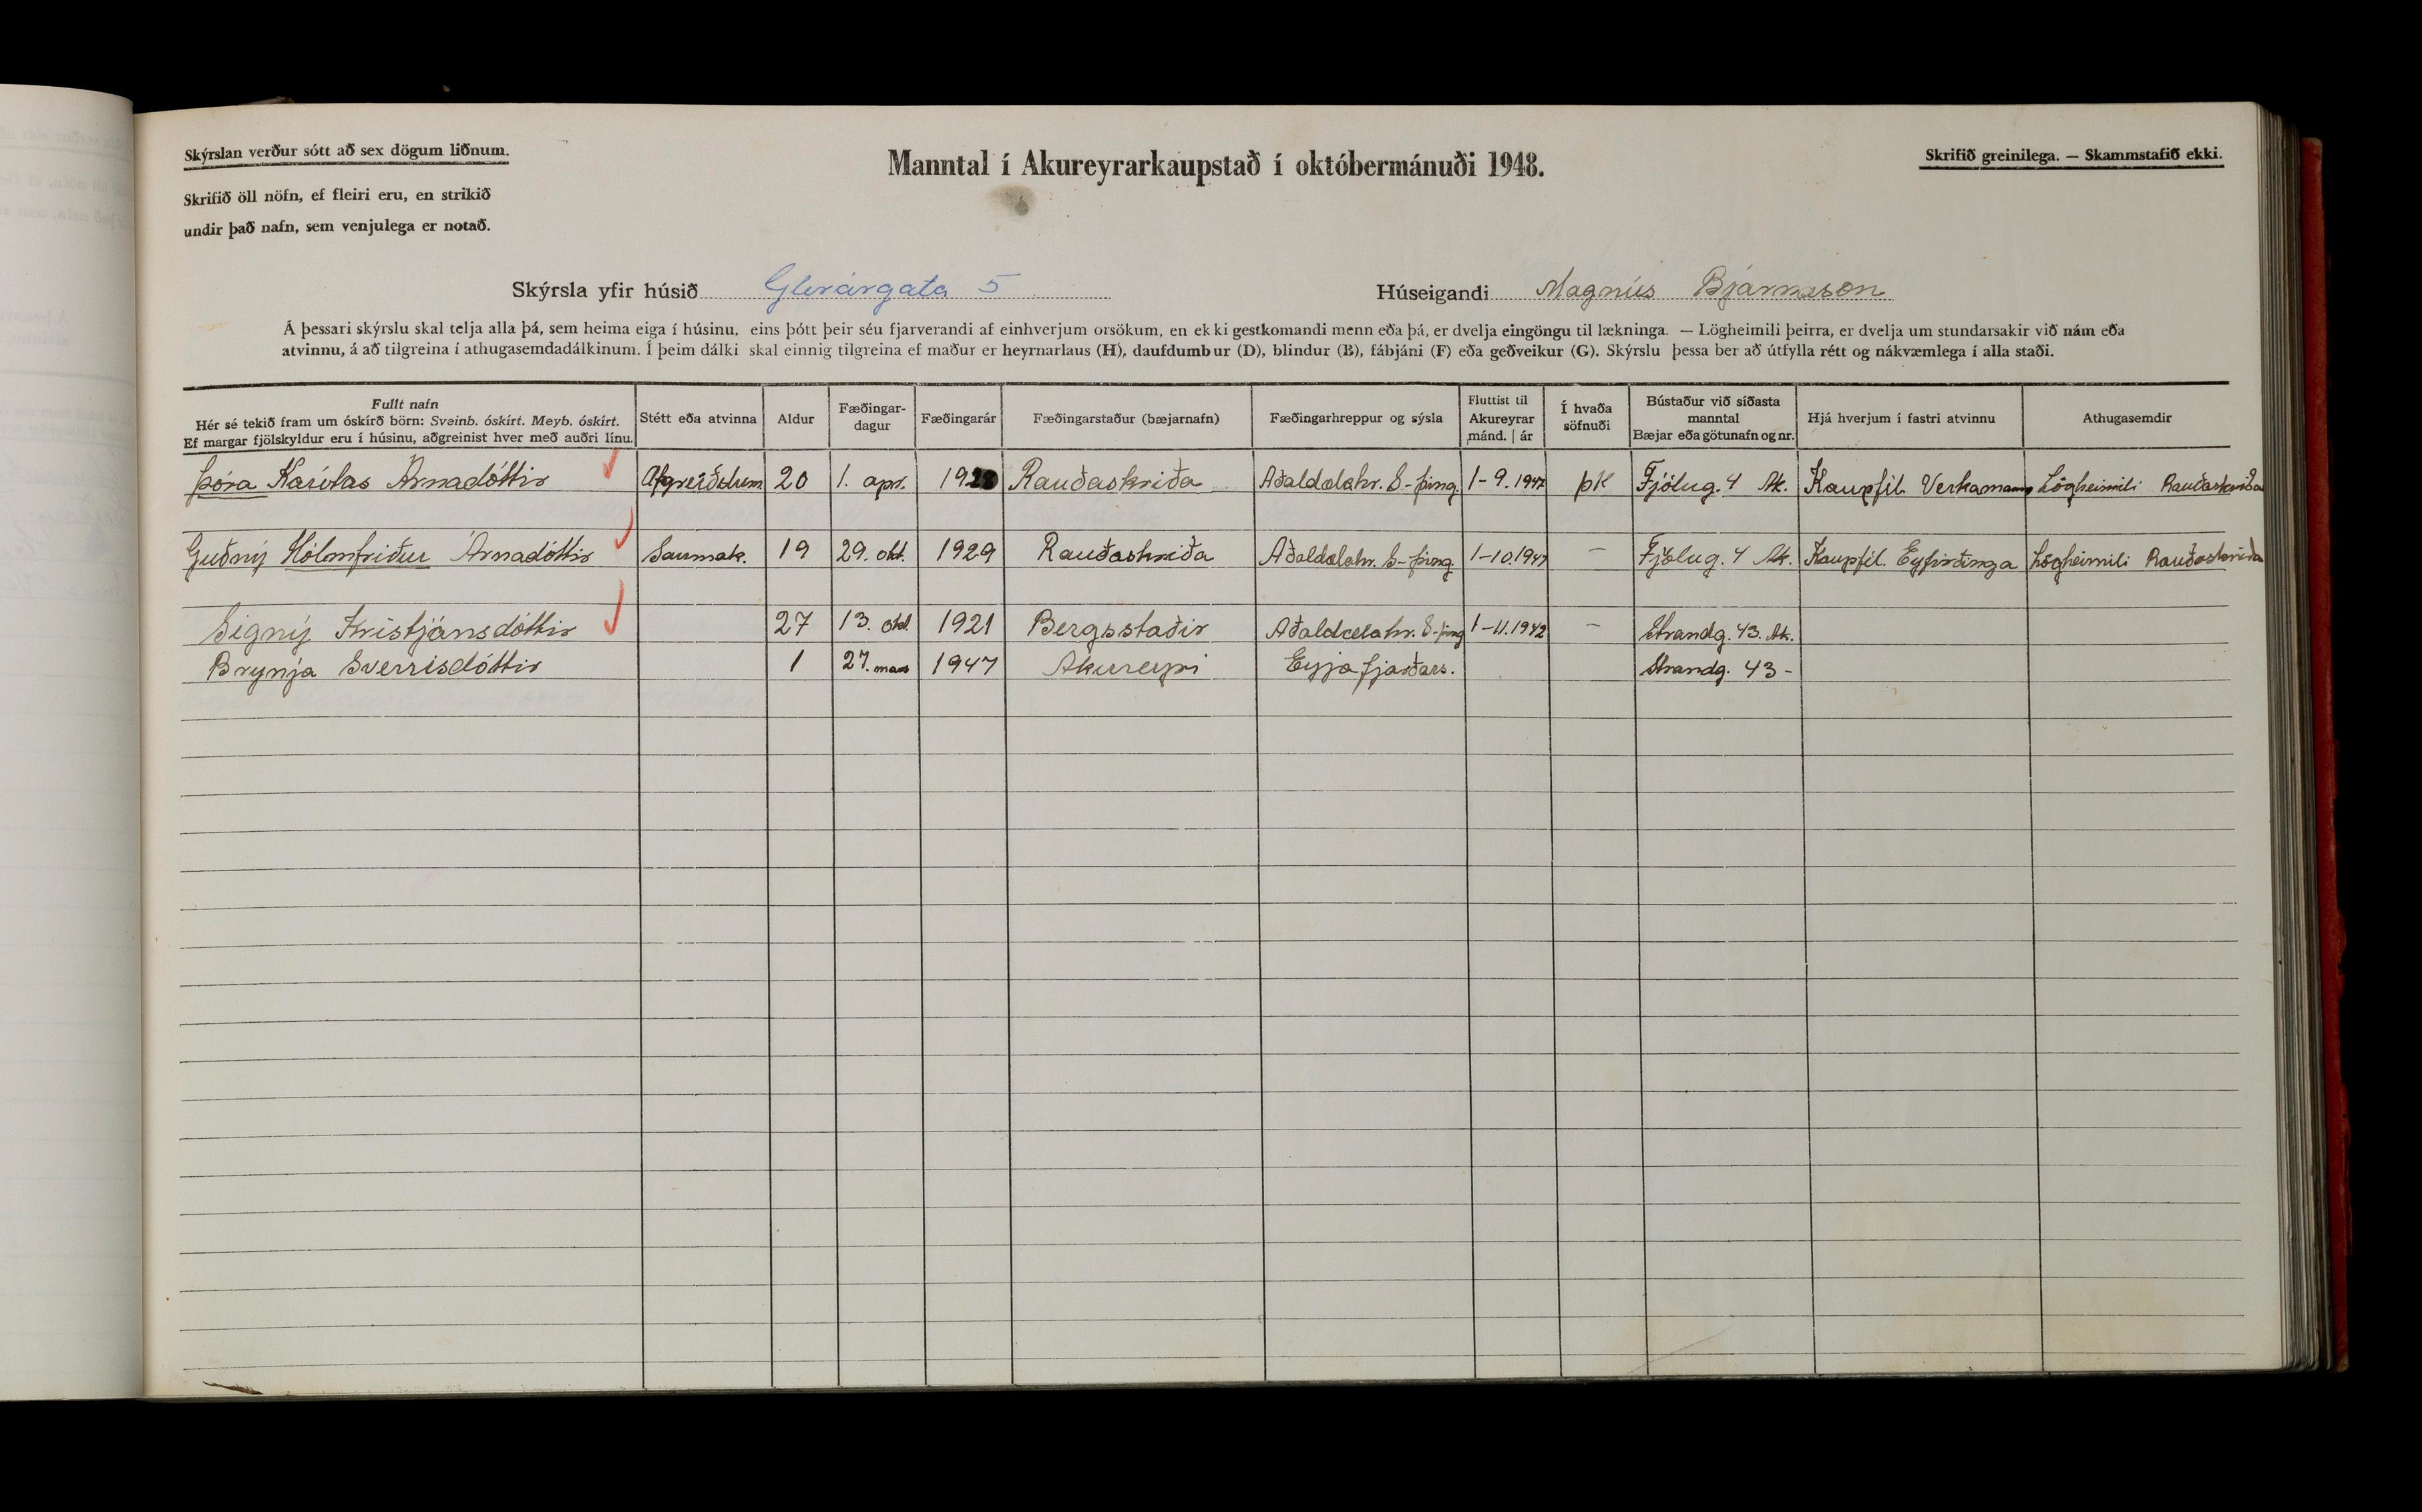 Skýrslan verður sótt að sex dögum liðnum.
Skrifið öll nöfn, ef fleiri eru, en strikið
undir það nafn, sem venjulega er notað.
Manntal í Akureyrarkaupstað í októbermánuði 1948.
Skrifið greinilega. — Skammstafið ekki.
Skýrsla yfir húsið Glerárgata 5
Húseigandi Magnús Bjarnason
Á þessari skýrslu skal telja alla þá, sem heima eiga í húsinu, eins þótt þeir séu fjarverandi af einhverjum orsökum, en ekki gestkomandi menn eða þá, er dvelja eingöngu til lækninga. — Lögheimili þeirra, er dvelja um stundarsakir við nám eða
atvinnu, á að tilgreina í athugasemdadálkinum. Í þeim dálki skal einnig tilgreina ef maður er heyrnarlaus (H), daufdumbur (D), blindur (B), fábjáni (F) eða geðveikur (G). Skýrslu þessa ber að útfylla rétt og nákvæmlega í alla staði.
Fullt nafn
Hér sé tekið fram um óskírð börn: Sveinb. óskírt. Meyb. óskírt.
Ef margar fjölskyldur eru í húsinu, aðgreinist hver með auðri línu.
Stétt eða atvinna
Aldur
Fæðingar-
dagur
Fæðingarár
Fæðingarstaður (bæjarnafn)
Fæðingarhreppur og sýsla
Fluttist til
Akureyrar
mánd. | ár
Í hvaða
söfnuði
Bústaður við síðasta
manntal
Bæjar eða götunafn og nr.
Hjá hverjum í fastri atvinnu
Athugasemdir
Þóra Árnadóttir 20 1. apr. 1928 Rauðaskriða Aðaldalahr. S-þing. 1-9.1947 ÞK Fjólug. 4 Ak. Kaupfél. Verkamanna Lögheimili Rauðaskriða
Guðný Hólmfríður Árnadóttir Saumak. 19 29. okt. 1929 Rauðaskriða Aðaldalahr. S-þing. 1-10.1947 — Fjólug. 4 Ak. Kaupfél. Eyfirðinga Lögheimili Rauðaskriða
Signý Kristjánsdóttir 27 13. okt. 1921 Bergsstaðir Aðaldælahr. S-þing 1-11.1942 — Strandg. 43. Ak.
Brynja Sverrisdóttir 1 27. mars 1947 Akureyri Eyjafjarðars. Strandg. 43 -